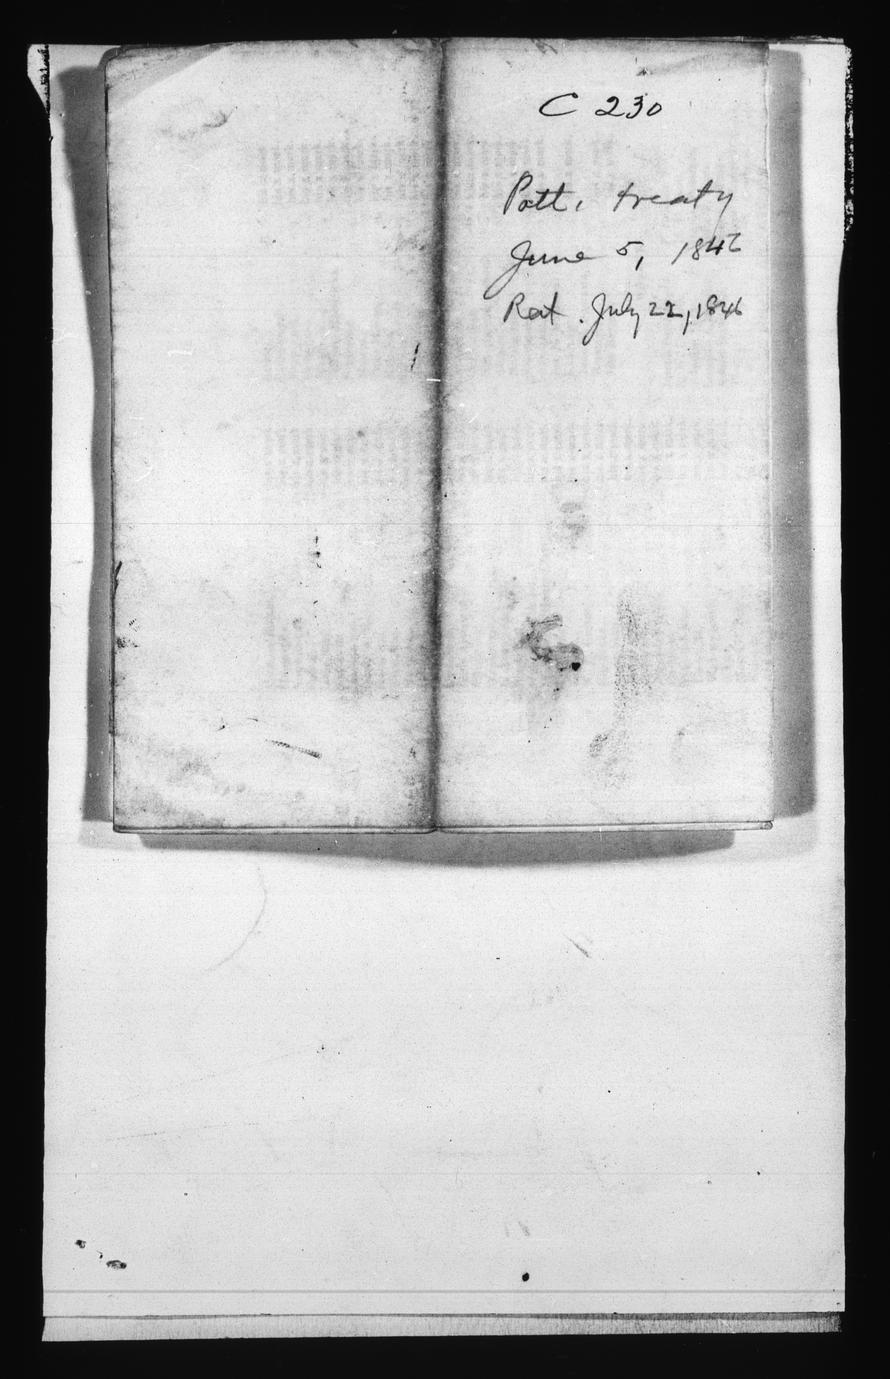 C 230
Pott. treaty
June 5, 1846
Rat. July 22, 1846